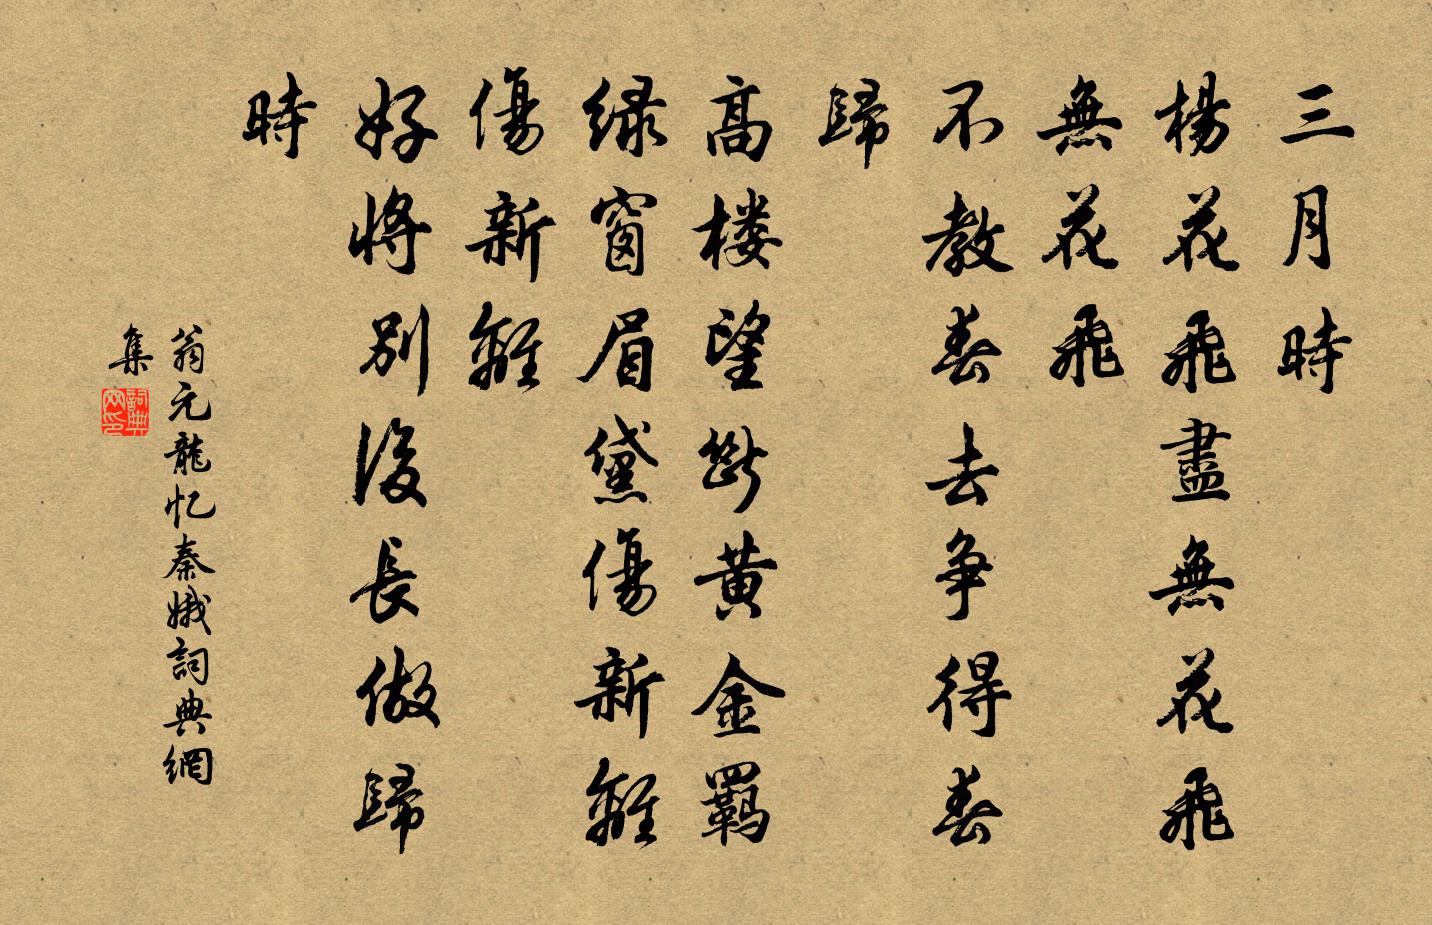 三月時
楊花飛盡無花飛
無花飛
不教春去争得春
歸
高楼望断黄金羈
緑窗眉黛傷新離
傷新離
好将别後長做歸
時
翁元龍忆秦娥詞典網
集
詞典网印